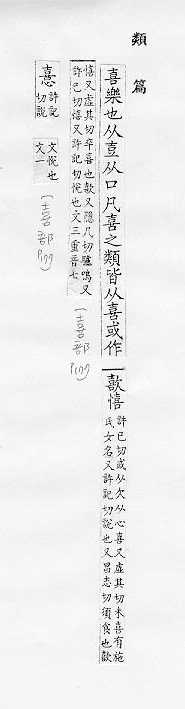 類篇
喜樂也从壴从口凡喜之類皆从喜或作
歖憘
許已切或从欠从心喜又虛其切末喜有施
氏女名又許記切說也又昌志切須食也歖
憘又虛其切卒喜也歖又隱几切驢鳴又
許已切憘又許記切悅也文三重音七
(喜部 P.177)
憙
許記
切說
文悅也
文一
(喜部 P.177)